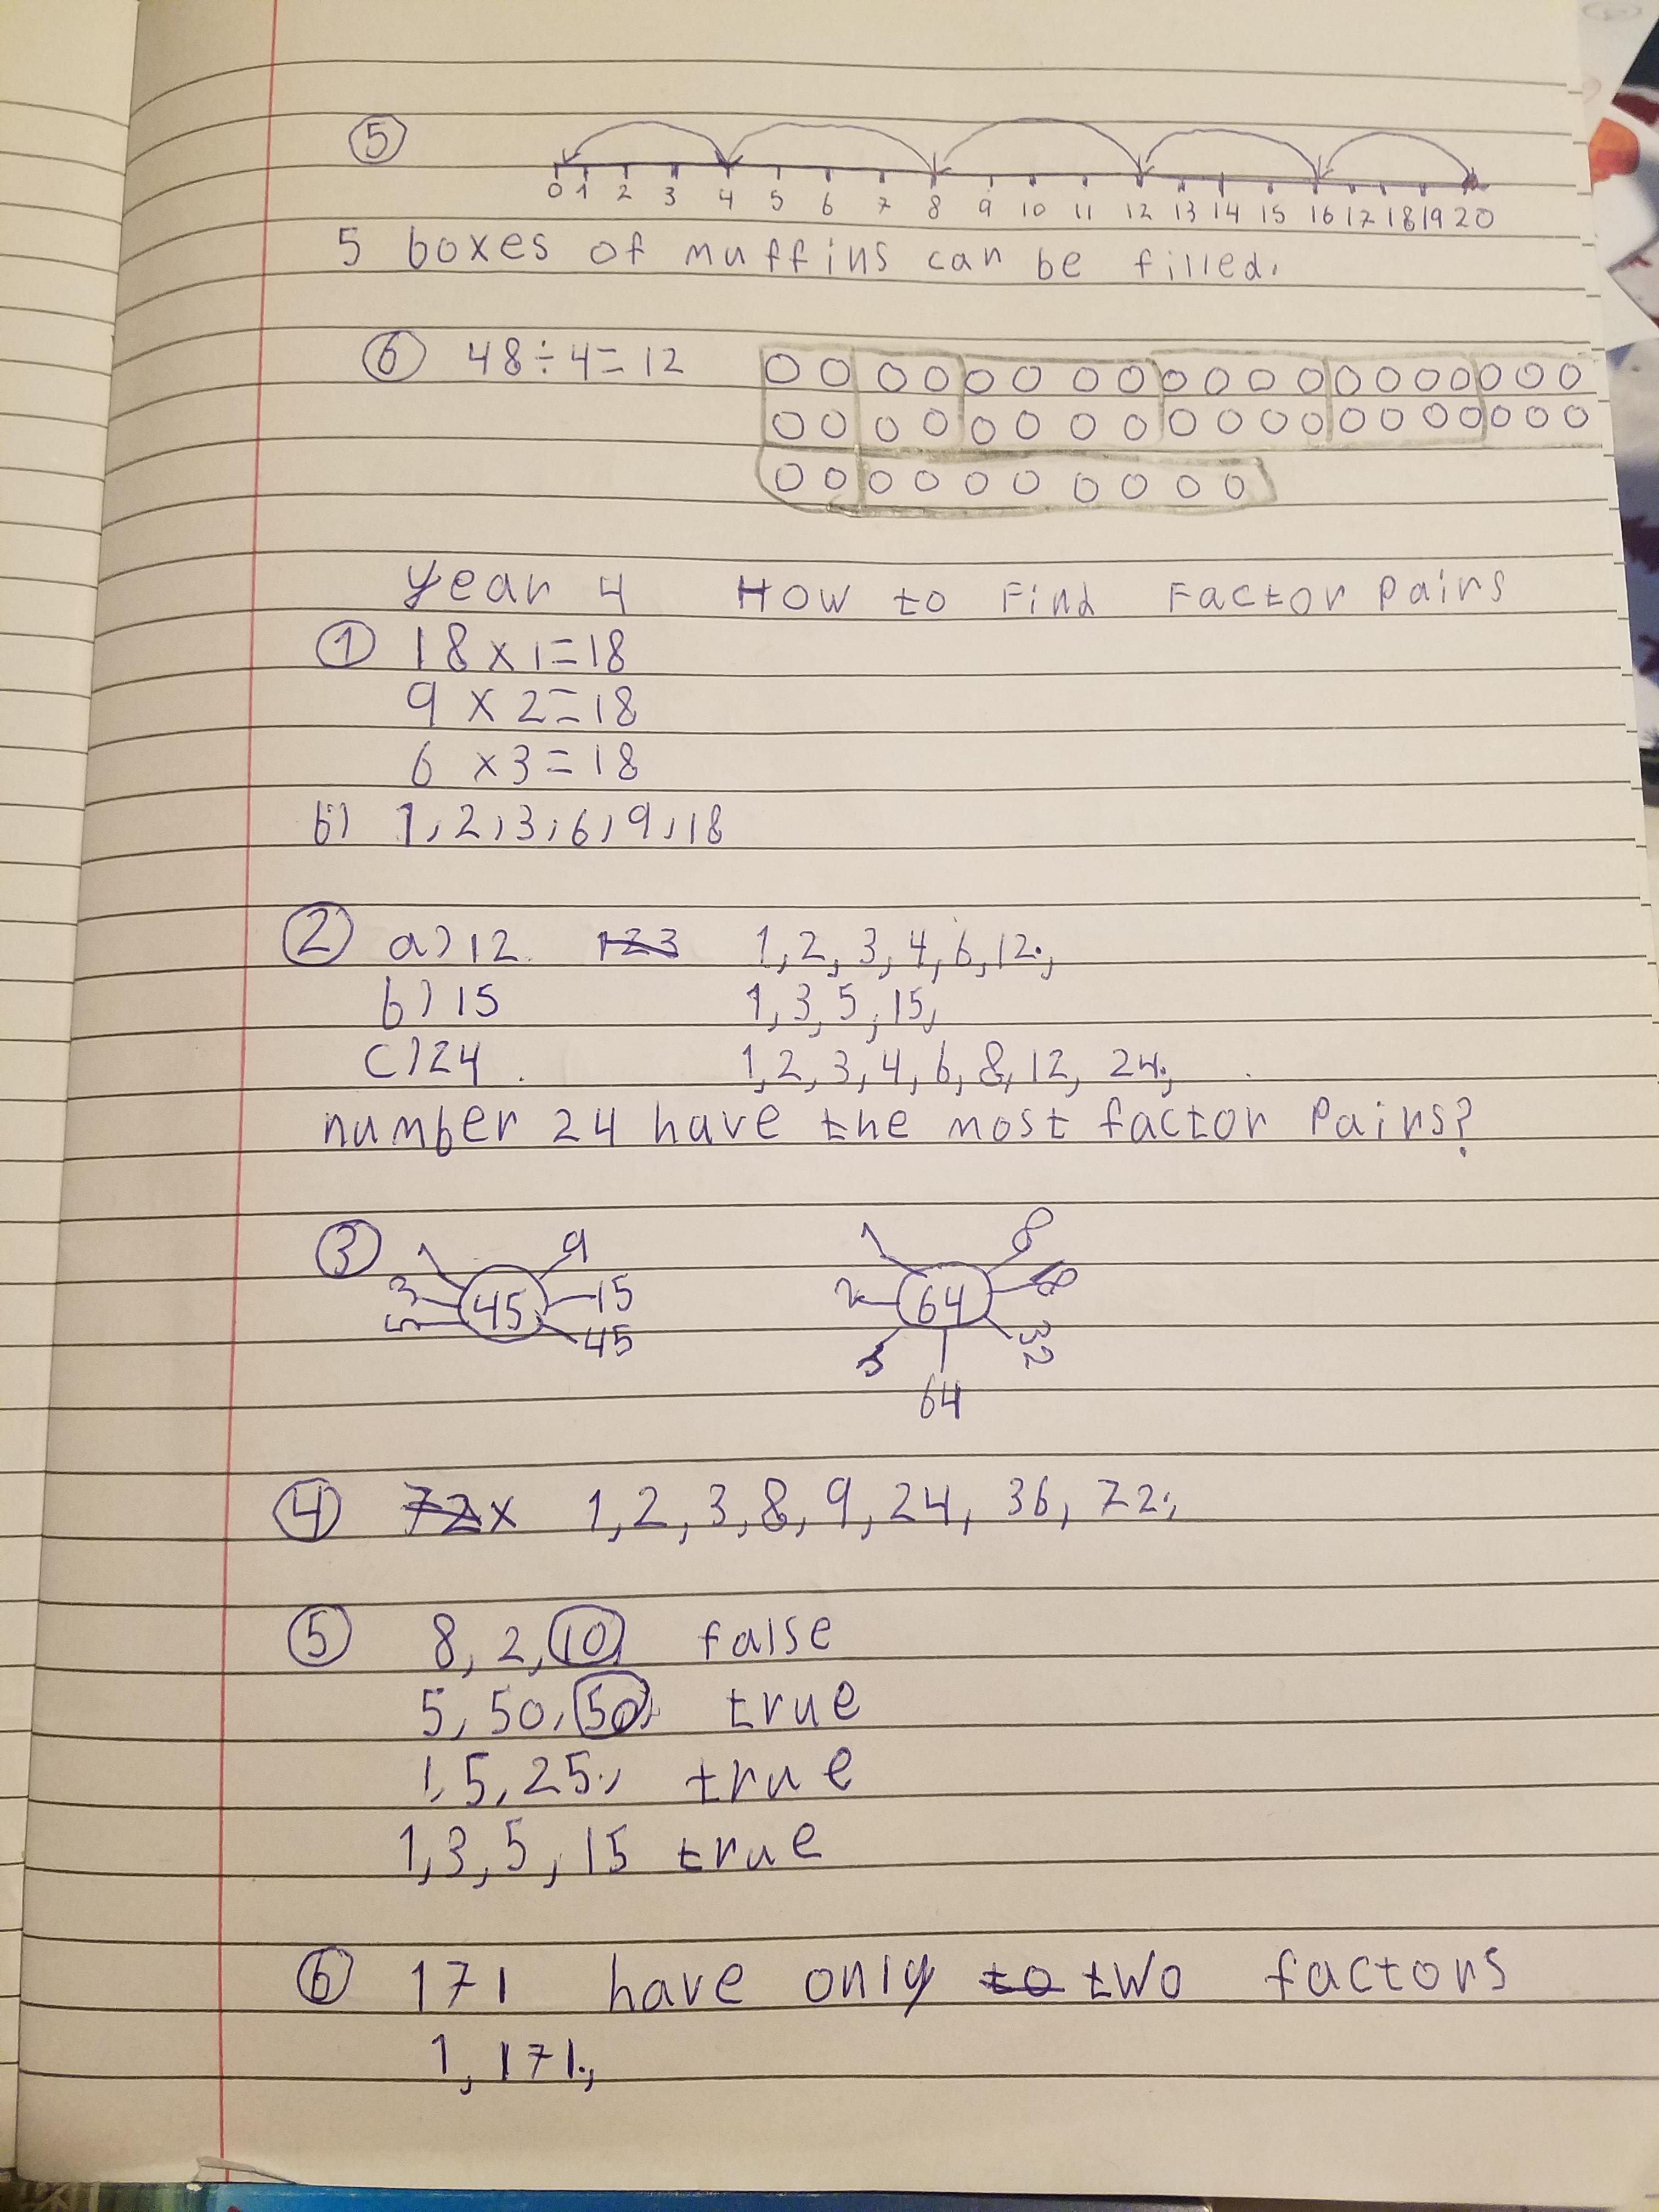 5
0 1 2 3 4 5 6 7 8 9 10 11 12 13 14 15 16 17 18 19 20
5 boxes of muffins can be filled.
6 48÷4=12
year 4 How to Find Factor Pairs
1 18 x 1=18
9 x 2=18
6 x 3=18
b) 1, 2, 3, 6, 9, 18
2 a) 12. 123 1, 2, 3, 4, 6, 12.,
b) 15 1, 3, 5, 15,
c) 24. 1, 2, 3, 4, 6, 8, 12, 24.,
number 24 have the most factor Pairs?
3 1 9 1 8
3 45 15 2 64 8
5 45 32
64
4 72x 1, 2, 3, 8, 9, 24, 36, 72.,
5 8, 2, 10, false
5, 50, 50. true
1, 5, 25., true
1, 3, 5, 15 true
6 171 have only to two factors
1, 171.,